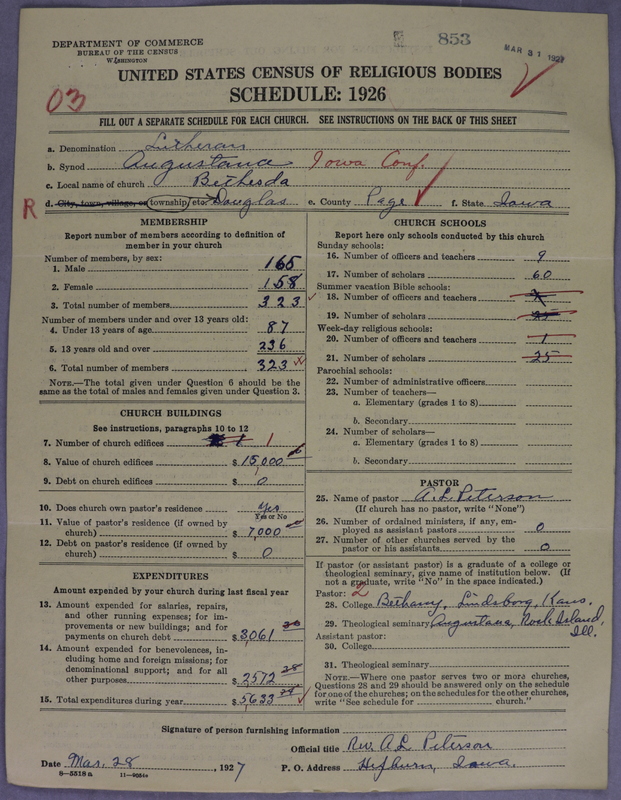 DEPARTMENT OF COMMERCE
BUREAU OF THE CENSUS
WASHINGTON
853
MAR 31 1927
UNITED STATES CENSUS OF RELIGIOUS BODIES
SCHEDULE: 1926
03
FILL OUT A SEPARATE SCHEDULE FOR EACH CHURCH. SEE INSTRUCTIONS ON THE BACK OF THIS SHEET
a. Denomination Lutheran
b. Synod Augustana Iowa Conf.
c. Local name of church Bethesda
R d. City, town, village, or township, etc. Douglas e. County Page f. State Iowa
MEMBERSHIP
Report number of members according to definition of
member in your church
Number of members, by sex:
1. Male 165
2. Female 158
3. Total number of members 323
Number of members under and over 13 years old:
4. Under 13 years of age 87
5. 13 years old and over 236
6. Total number of members 323
NOTE.—The total given under Question 6 should be the
same as the total of males and females given under Question 3.
CHURCH BUILDINGS
See instructions, paragraphs 10 to 12
7. Number of church edifices 1
8. Value of church edifices $ 15,000
9. Debt on church edifices $ 0
10. Does church own pastor's residence Yes
Yes or No
11. Value of pastor's residence (if owned by
church) $ 7000
12. Debt on pastor's residence (if owned by
church) $ 0
EXPENDITURES
Amount expended by your church during last fiscal year
13. Amount expended for salaries, repairs,
and other running expenses; for im-
provements or new buildings; and for
payments on church debt $ 3,061
14. Amount expended for benevolences, in-
cluding home and foreign missions; for
denominational support; and for all
other purposes $ 2572 28
15. Total expenditures during year $ 5633
CHURCH SCHOOLS
Report here only schools conducted by this church
Sunday schools:
16. Number of officers and teachers 9
17. Number of scholars 60
Summer vacation Bible schools:
18. Number of officers and teachers
19. Number of scholars
Week-day religious schools:
20. Number of officers and teachers 1
21. Number of scholars 25
Parochial schools:
22. Number of administrative officers
23. Number of teachers—
a. Elementary (grades 1 to 8)
b. Secondary
24. Number of scholars—
a. Elementary (grades 1 to 8)
b. Secondary
PASTOR
25. Name of pastor A. L. Peterson
(If church has no pastor, write "None")
26. Number of ordained ministers, if any, em-
ployed as assistant pastors 0
27. Number of other churches served by the
pastor or his assistants 0
If pastor (or assistant pastor) is a graduate of a college or
theological seminary, give name of institution below. (If
not a graduate, write "No" in the space indicated.)
Pastor: 2
28. College Bethany, Lindsborg, Kans.
29. Theological seminary Augustana, Rock Island,
Ill.
Assistant pastor:
30. College
31. Theological seminary
NOTE.—Where one pastor serves two or more churches,
Questions 28 and 29 should be answered only on the schedule
for one of the churches; on the schedules for the other churches,
write "See schedule for church."
Signature of person furnishing information
Official title Rev. A L Peterson
Date Mar. 28, 1927 P. O. Address Hepburn, Iowa.
8—5518a 11—9054a